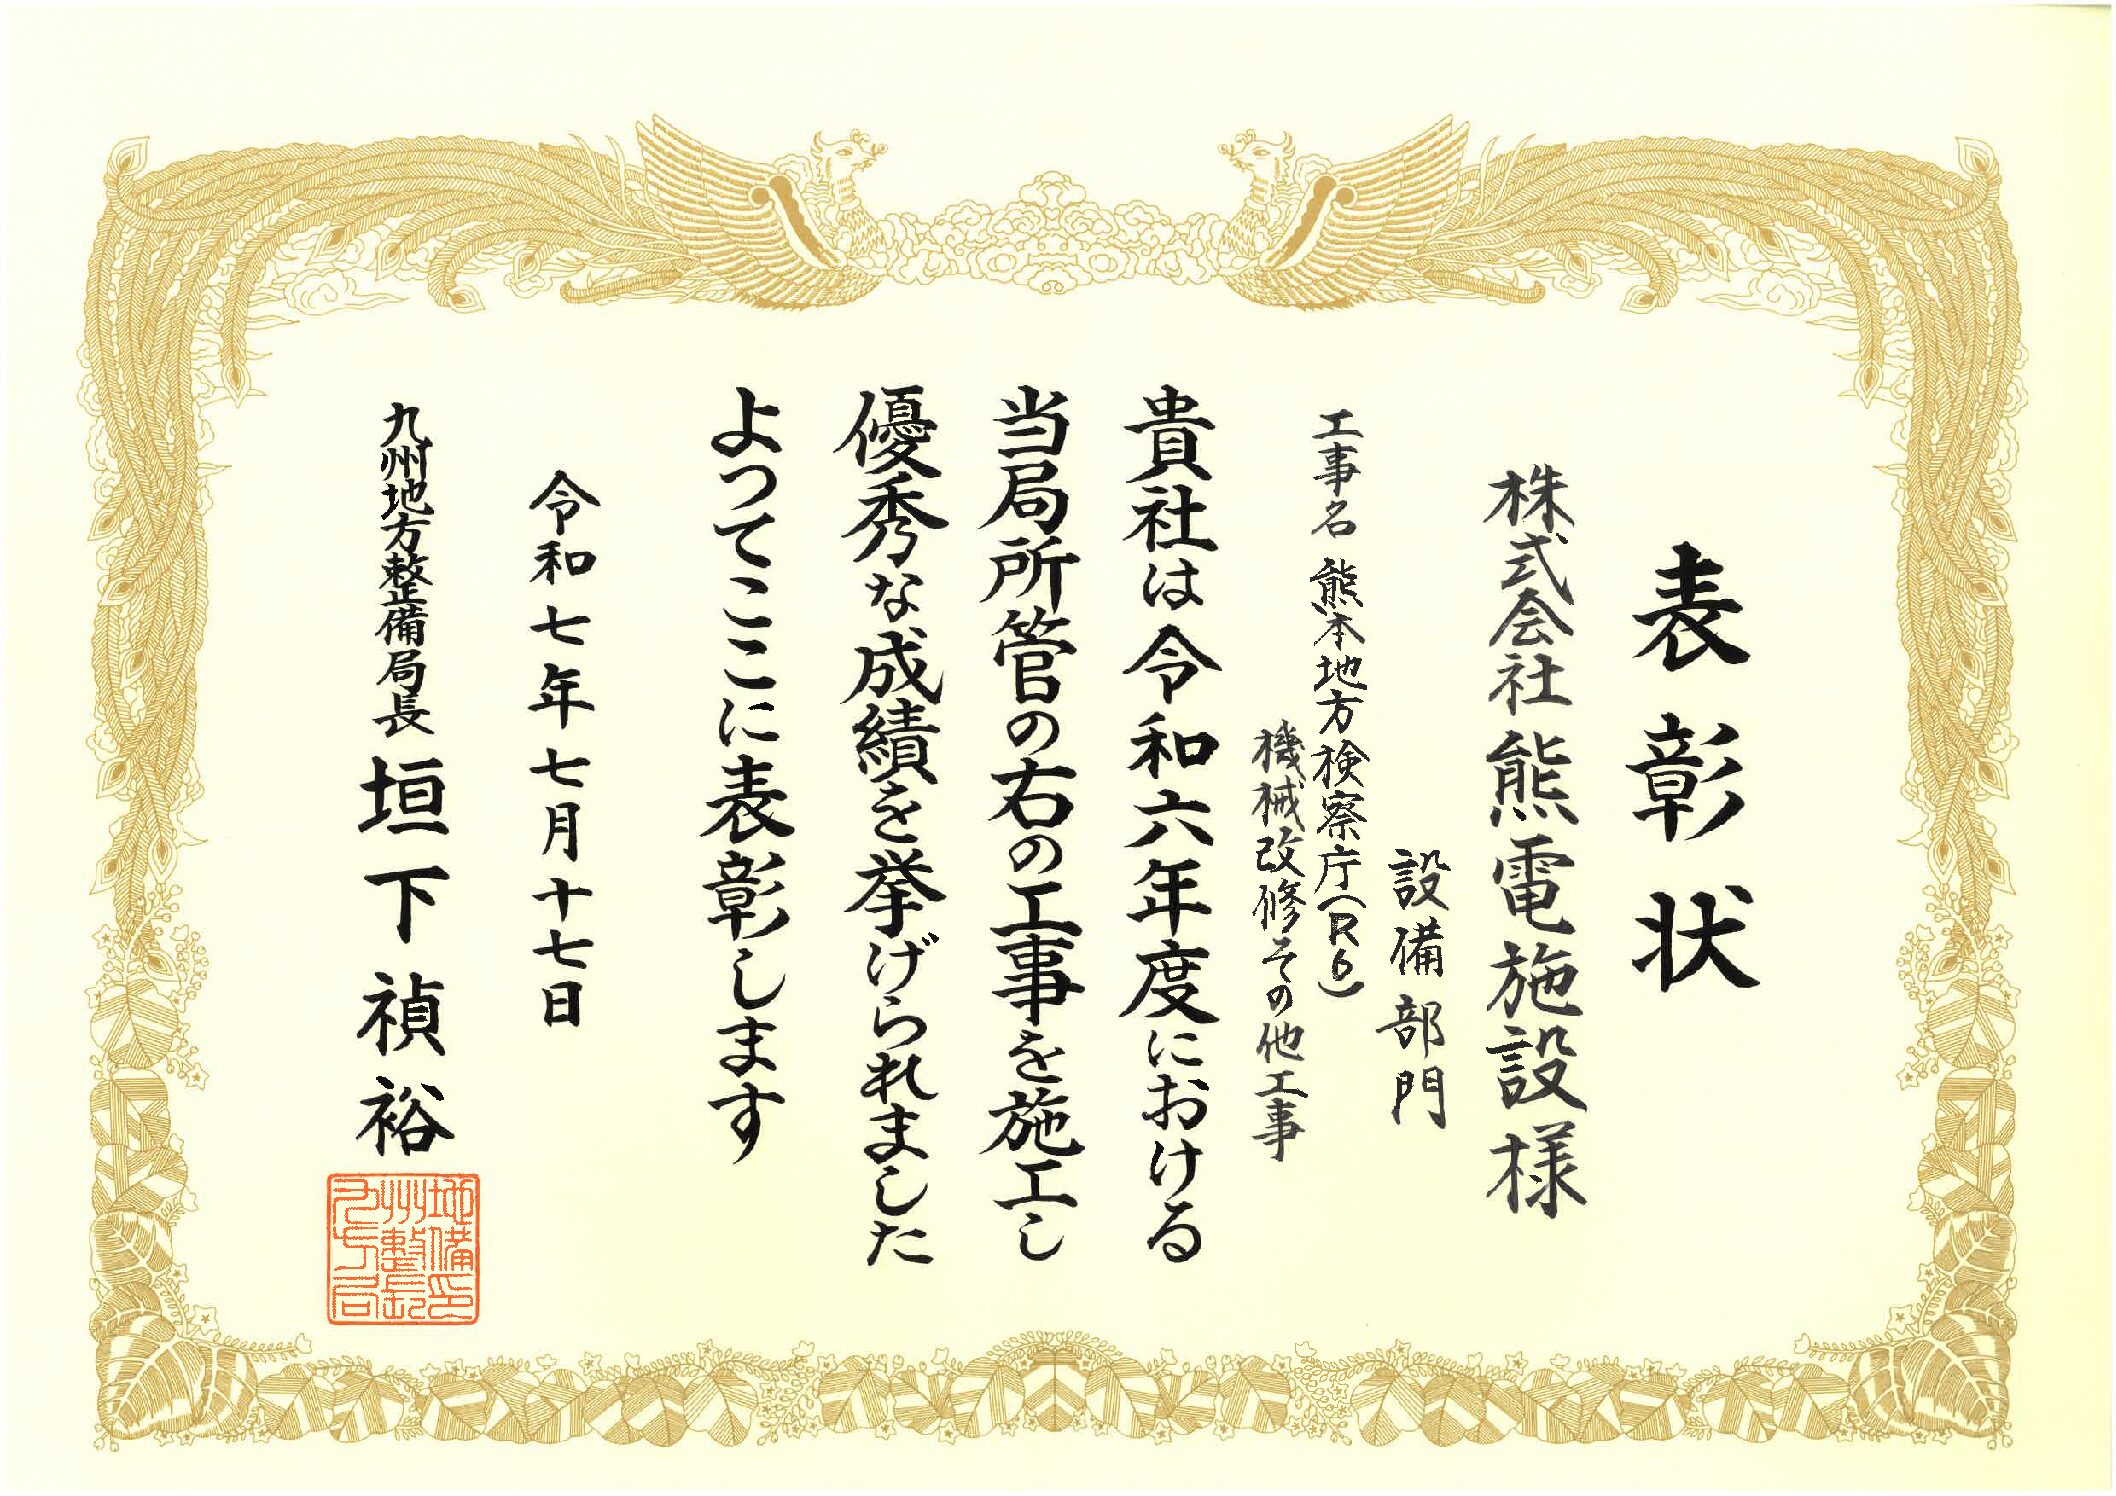 表彰状
株式会社熊電施設様
設備部門
工事名 熊本地方検察庁(R6)
機械改修その他工事
貴社は令和六年度における
当局所管の右の工事を施工し
優秀な成績を挙げられました
よってここに表彰します
令和七年七月十七日
九州地方整備局長 垣下禎裕
地備印
州整長
九方局